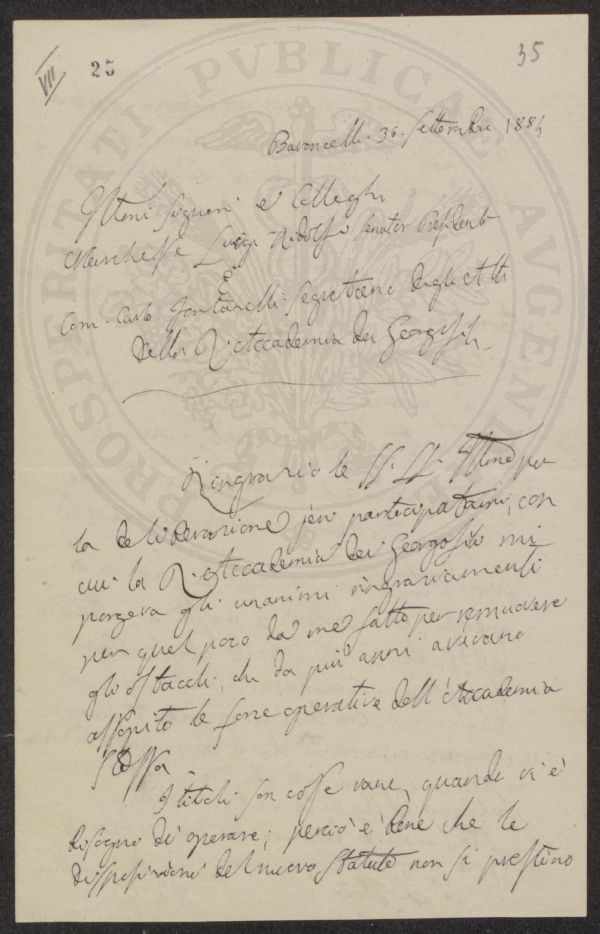 VII
25
35
Baroncelli. 30. Settembre 1884
Illmi Signori e Colleghi
Marchese Luigi Ridolfi Senator Presidente
E
Com. Carlo Fontanelli Segretario degli Atti
della R. Accademia dei Georgofili
Ringrazio le SS. LL. Illme per
la deliberazione jeri participatami, con
cui la R. Accademia dei Georgofili mi
porgeva gli unanimi ringraziamenti
per quel poco da me fatto per remuovere
gli ostacoli, che da più anni avevano
assopito le forze operative dell'Accademia
stessa
I titoli son cose vane, quando vi è
bisogno di operare; perciò è bene che le
disposizioni del nuovo Statuto non si prestino
PROSPERITATI PVBLICAE AVGENDAE